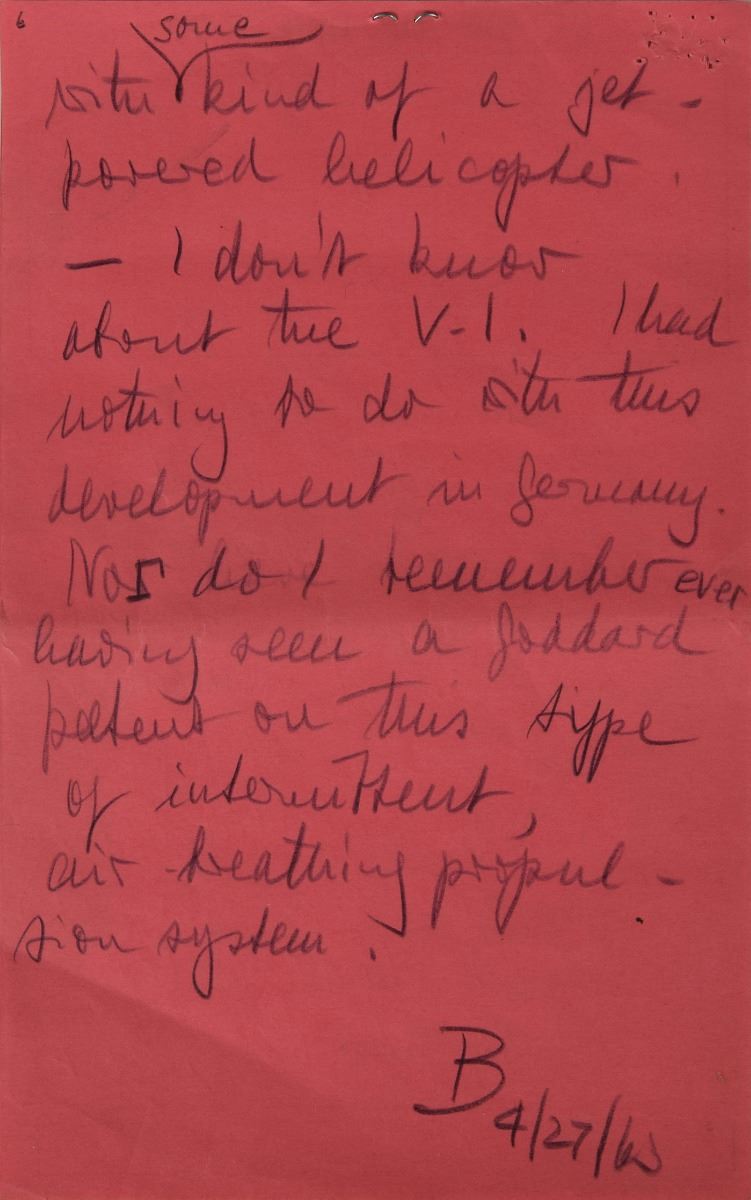 6
some
with kind of a jet-
powered helicopter.
— I don't know
about the V-1. I had
nothing to do with this
development in Germany.
Nor do I remember ever
having seen a Goddard
patent on this type
of intermittent,
air-breathing propul-
sion system.
B
4/27/